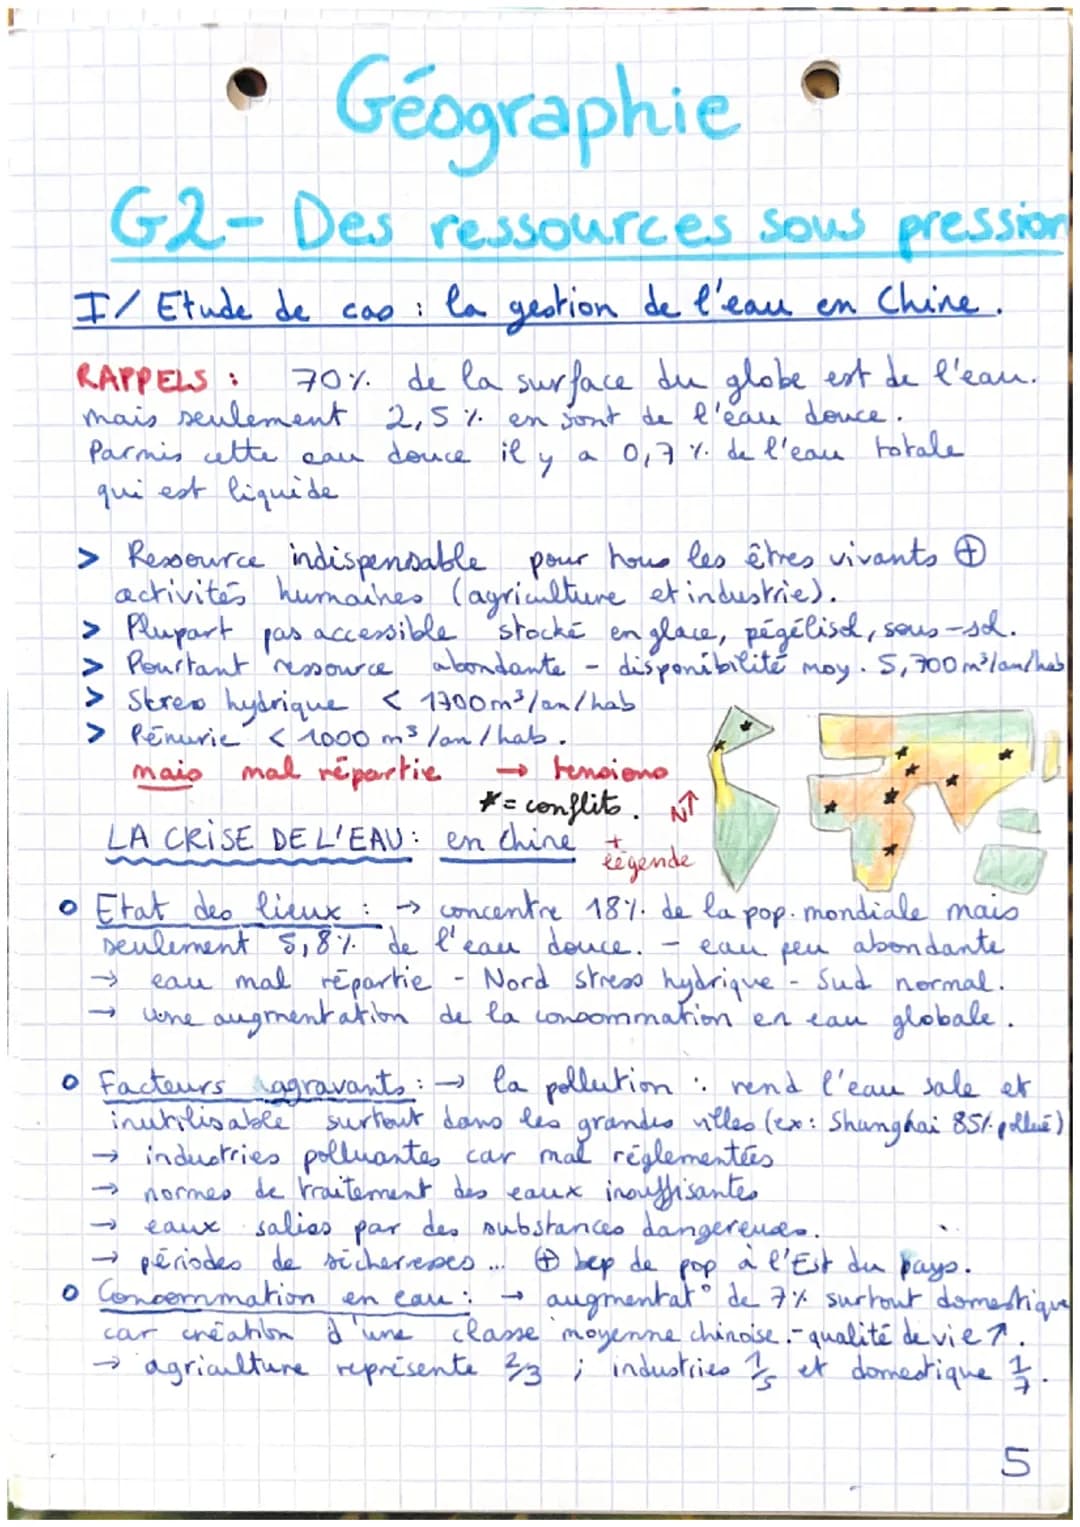 Géographie
G2- Des ressources sous pression
I/ Etude de cas : la gestion de l'eau en Chine.
RAPPELS : 70% de la surface du globe est de l'eau.
mais seulement 2,5% en sont de l'eau douce.
Parmis cette eau douce il y a 0,7% de l'eau totale
qui est liquide
> Ressource indispensable pour tous les êtres vivants ⊕
activités humaines (agriculture et industrie).
> Plupart pas accessible stocké en glace, pégélisol, sous-sol.
> Pourtant ressource abondante - disponibilité moy. 5,700 m³/an/hab
> Stress hydrique < 1700m³/an/hab
> Pénurie < 1000 m³/an/hab.
mais mal répartie → tensions
* = conflits. N↑
+
légende
LA CRISE DE L'EAU : en Chine
o Etat des lieux : → concentre 18% de la pop. mondiale mais
seulement 5,8% de l'eau douce. - eau peu abondante
→ eau mal répartie - Nord stress hydrique - Sud normal.
→ une augmentation de la consommation en eau globale.
o Facteurs aggravants : → la pollution : rend l'eau sale et
inutilisable surtout dans les grandes villes (ex: Shanghai 85% pollué)
→ industries polluantes car mal réglementées
→ normes de traitement des eaux insuffisantes
→ eaux salies par des substances dangereuses.
→ périodes de sécheresses ... ⊕ bcp de pop à l'Est du pays.
o Consommation en eau : → augmentat° de 7% surtout domestique
car création d'une classe moyenne chinoise. - qualité de vie ↑.
→ agriculture représente 2/3 ; industries 1/5 et domestique 1/7.
5